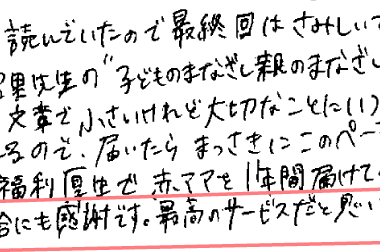 読んでいたので最終回はさみしいで
先生の“子どものまなざし親のまなざし
文章で小さいけれど大切なことにいつ
るので、届いたらまっさきにこのペー
福利厚生で赤ママを1年間届けて
会にも感謝です。最高のサービスだと思い